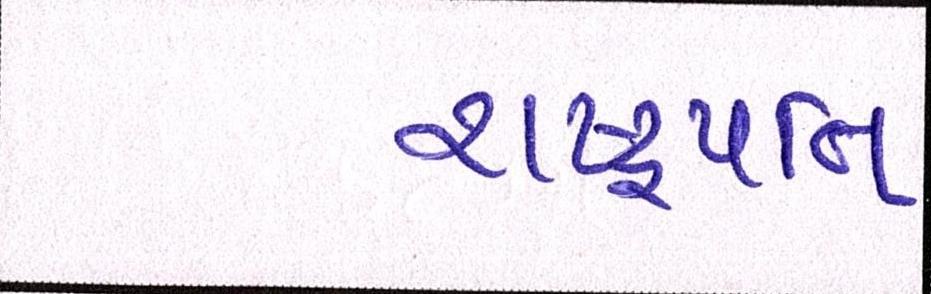 રાષ્ટ્રપતિ